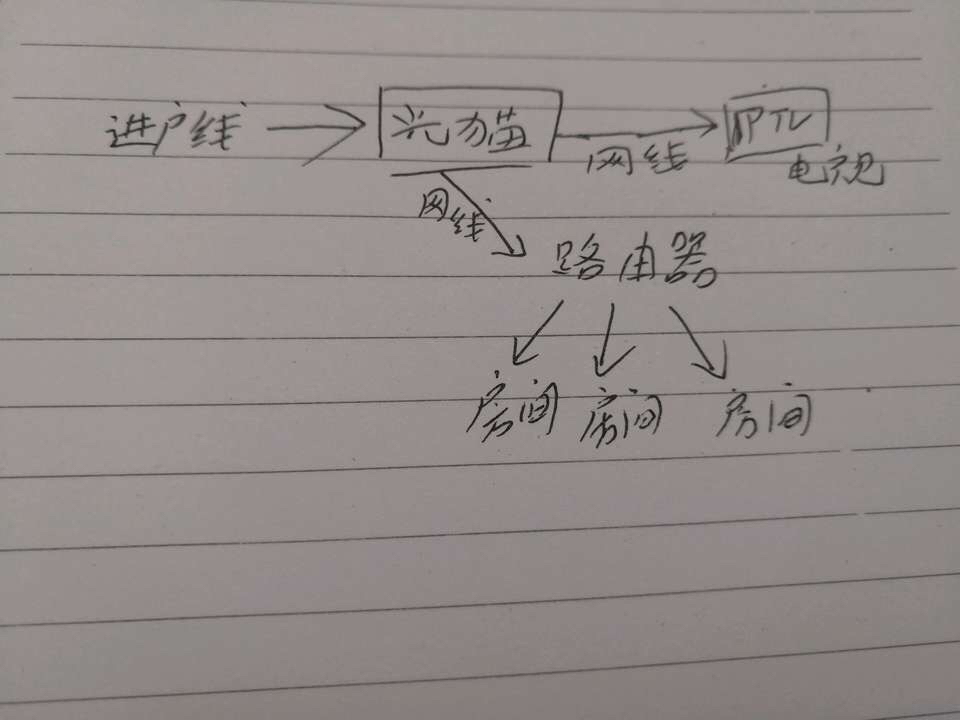 进户线 光猫 IPTV
网线 电视
网线
路由器
房间 房间 房间